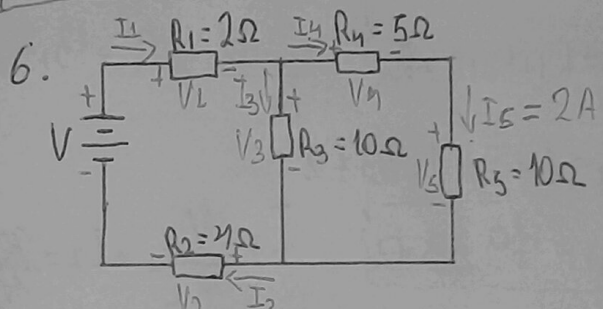 6.
I1 R1=2Ω I4 R4=5Ω
+ - + -
V1 I3 V4
+ + I5=2A
V V3 R3=10Ω + V5 R5=10Ω
- - -
R2=4Ω
- +
V2 I2